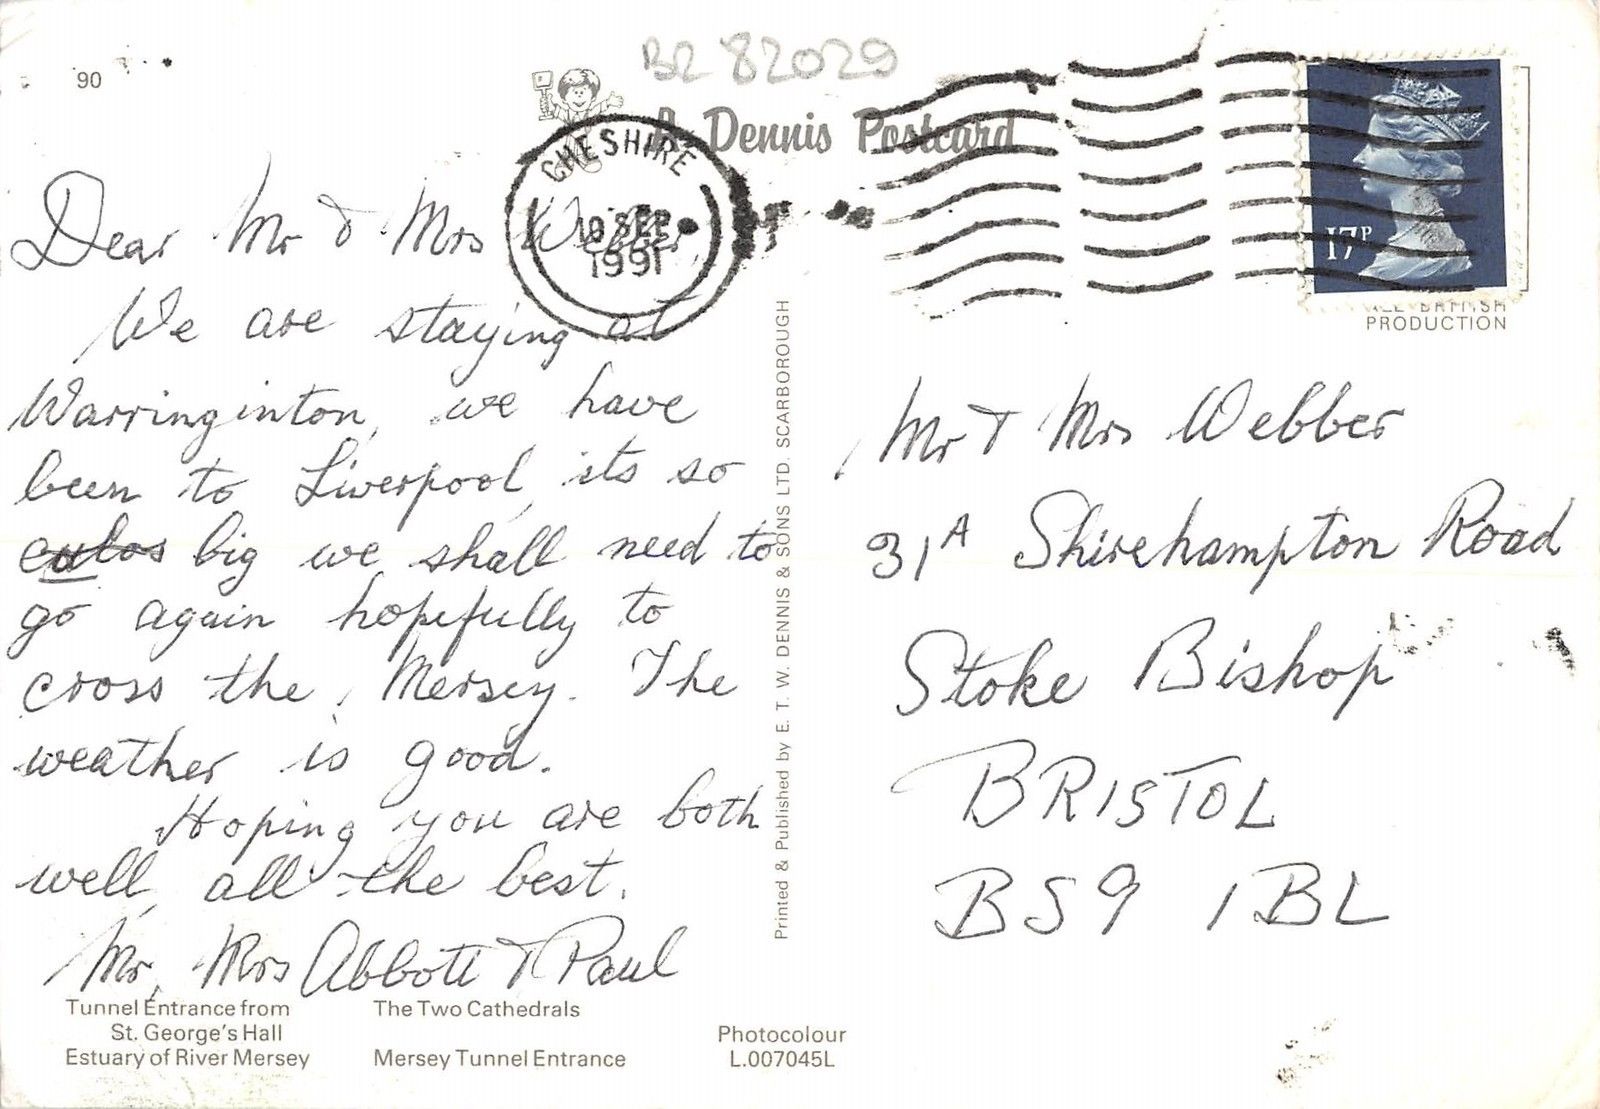 90
BR 82029
A Dennis Postcard
CHESHIRE
10 SEP
1991
17P
ALL BRITISH
PRODUCTION
Dear Mr & Mrs Webber,
We are staying at
Warringinton, we have
been to Liverpool, its so
big we shall need to
go again hopefully to
cross the Mersey. The
weather is good.
Hoping you are both
well, all the best.
Mr, Mrs Abbott & Paul
Printed & Published by E. T. W. DENNIS & SONS LTD. SCARBOROUGH
Mr & Mrs Webber
31A Shirehampton Road
Stoke Bishop
BRISTOL
BS9 1BL
Tunnel Entrance from
St. George's Hall
The Two Cathedrals
Estuary of River Mersey
Mersey Tunnel Entrance
Photocolour
L.007045L